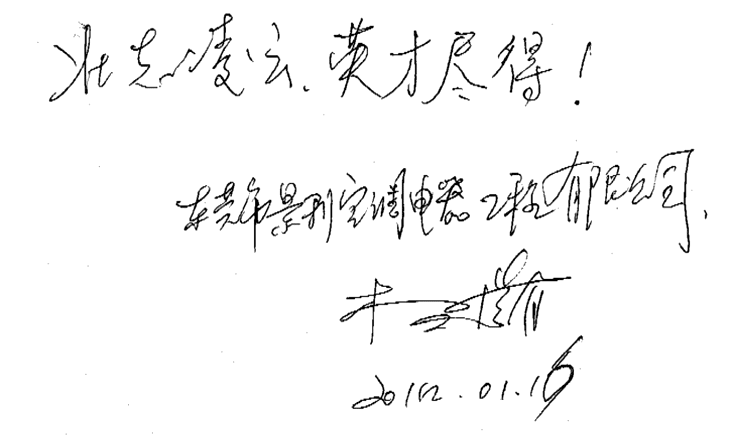 壮志凌云、英才尽得！
东莞市景利空调电器工程有限公司、
2012.01.16